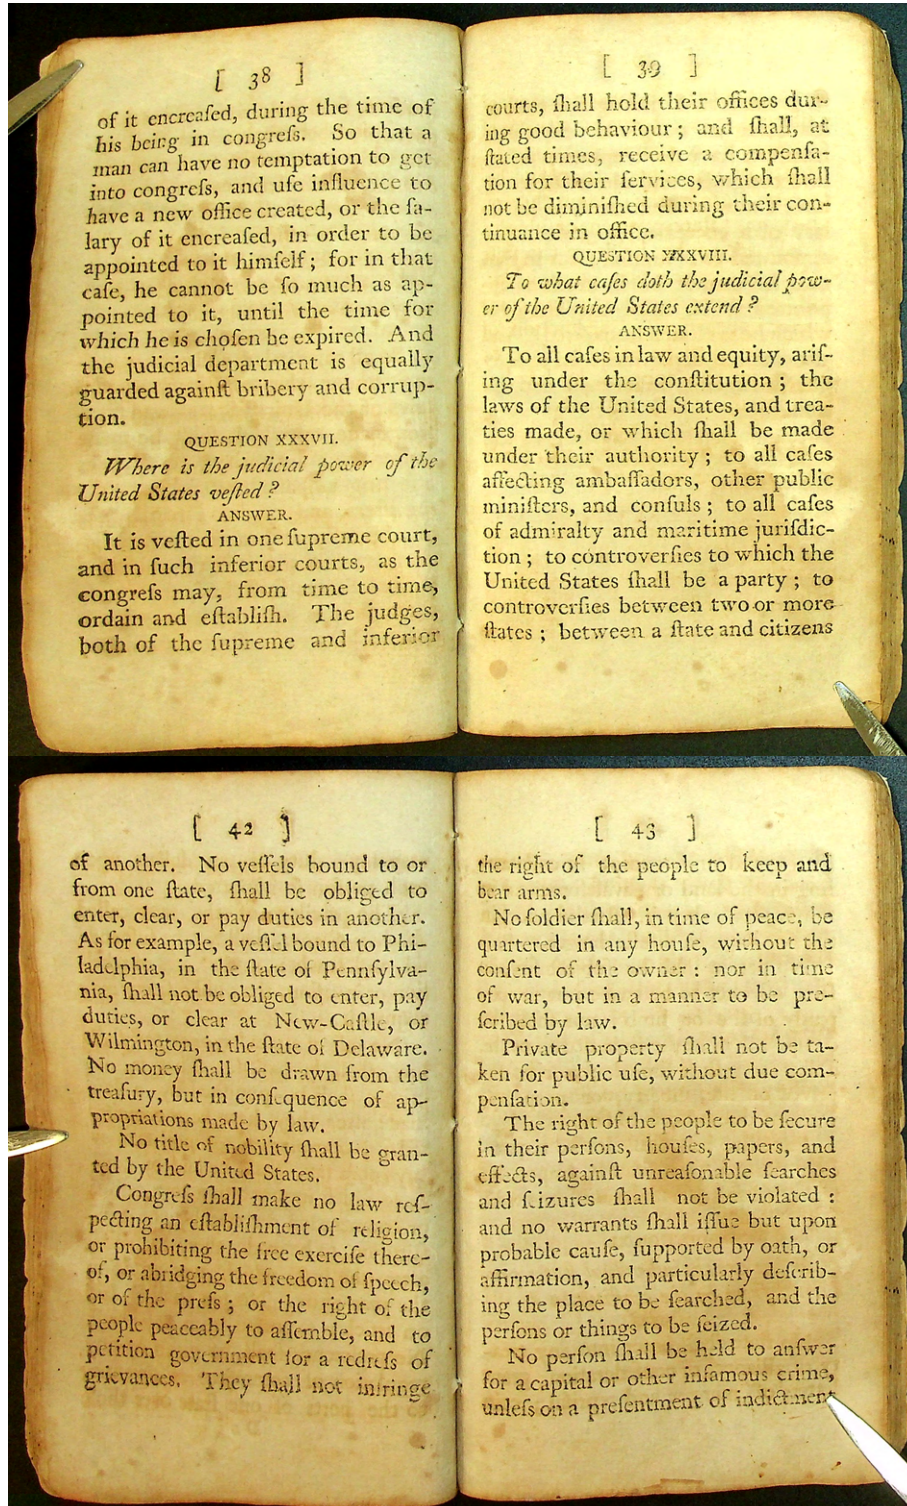 [ 38 ]
of it encreaſed, during the time of
his being in congreſs. So that a
man can have no temptation to get
into congreſs, and uſe influence to
have a new office created, or the ſa-
lary of it encreaſed, in order to be
appointed to it himſelf ; for in that
caſe, he cannot be ſo much as ap-
pointed to it, until the time for
which he is choſen be expired. And
the judicial department is equally
guarded againſt bribery and corrup-
tion.
QUESTION XXXVII.
Where is the judicial power of the
United States veſted ?
ANSWER.
It is veſted in one ſupreme court,
and in ſuch inferior courts, as the
congreſs may, from time to time,
ordain and eſtabliſh. The judges,
both of the ſupreme and inferior
[ 39 ]
courts, ſhall hold their offices dur-
ing good behaviour ; and ſhall, at
ſtated times, receive a compenſa-
tion for their ſervices, which ſhall
not be diminiſhed during their con-
tinuance in office.
QUESTION XXXVIII.
To what caſes doth the judicial pow-
er of the United States extend ?
ANSWER.
To all caſes in law and equity, ariſ-
ing under the conſtitution ; the
laws of the United States, and trea-
ties made, or which ſhall be made
under their authority ; to all caſes
affecting ambaſſadors, other public
miniſters, and conſuls ; to all caſes
of admiralty and maritime juriſdic-
tion ; to controverſies to which the
United States ſhall be a party ; to
controverſies between two or more
ſtates ; between a ſtate and citizens
[ 42 ]
of another. No veſſels bound to or
from one ſtate, ſhall be obliged to
enter, clear, or pay duties in another.
As for example, a veſſel bound to Phi-
ladelphia, in the ſtate of Pennſylva-
nia, ſhall not be obliged to enter, pay
duties, or clear at New-Caſtle, or
Wilmington, in the ſtate of Delaware.
No money ſhall be drawn from the
treaſury, but in conſequence of ap-
propriations made by law.
No title of nobility ſhall be gran-
ted by the United States.
Congreſs ſhall make no law reſ-
pecting an eſtabliſhment of religion,
or prohibiting the free exerciſe there-
of, or abridging the freedom of ſpeech,
or of the preſs ; or the right of the
people peaceably to aſſemble, and to
petition government for a redreſs of
grievances. They ſhall not infringe
[ 43 ]
the right of the people to keep and
bear arms.
No ſoldier ſhall, in time of peace, be
quartered in any houſe, without the
conſent of the owner : nor in time
of war, but in a manner to be pre-
ſcribed by law.
Private property ſhall not be ta-
ken for public uſe, without due com-
penſation.
The right of the people to be ſecure
in their perſons, houſes, papers, and
effects, againſt unreaſonable ſearches
and ſeizures ſhall not be violated :
and no warrants ſhall iſſue but upon
probable cauſe, ſupported by oath, or
affirmation, and particularly deſcrib-
ing the place to be ſearched, and the
perſons or things to be ſeized.
No perſon ſhall be held to anſwer
for a capital or other infamous crime,
unleſs on a preſentment of indictment